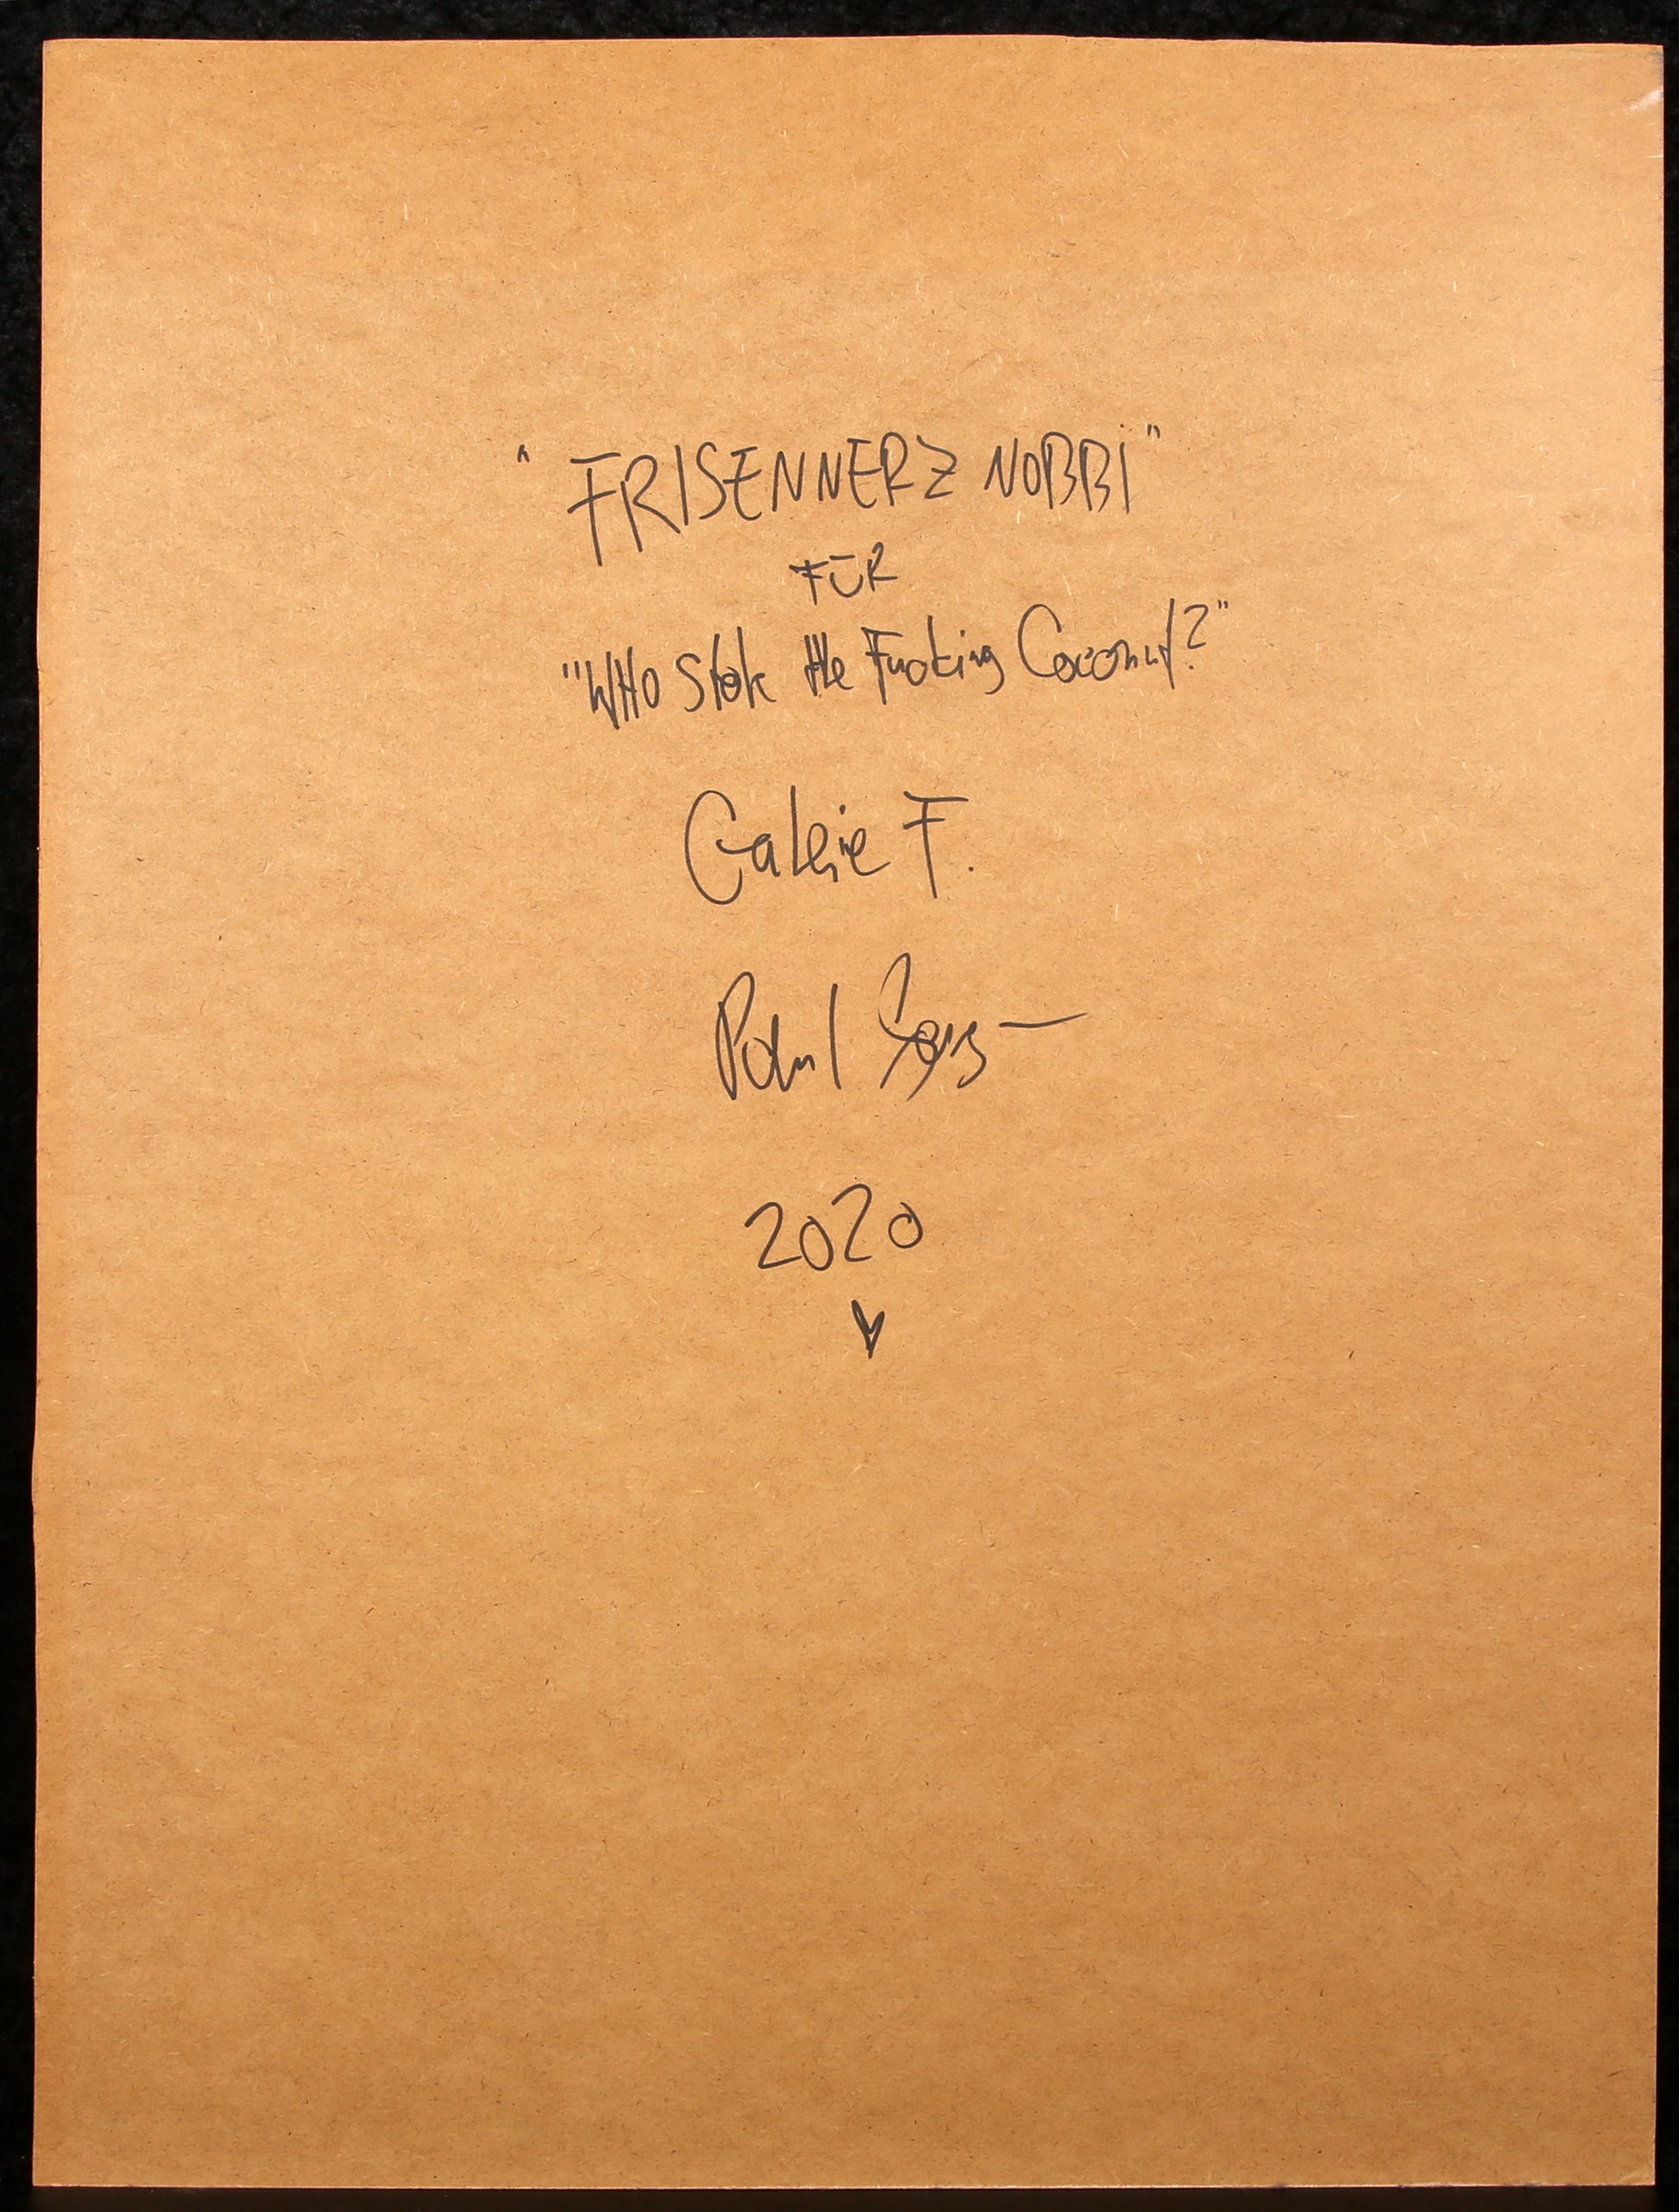 "FRISENNERZ NOBBI"
FÜR
"WHO Stole the Fucking Coconut?"
Galerie F.
Paul
2020